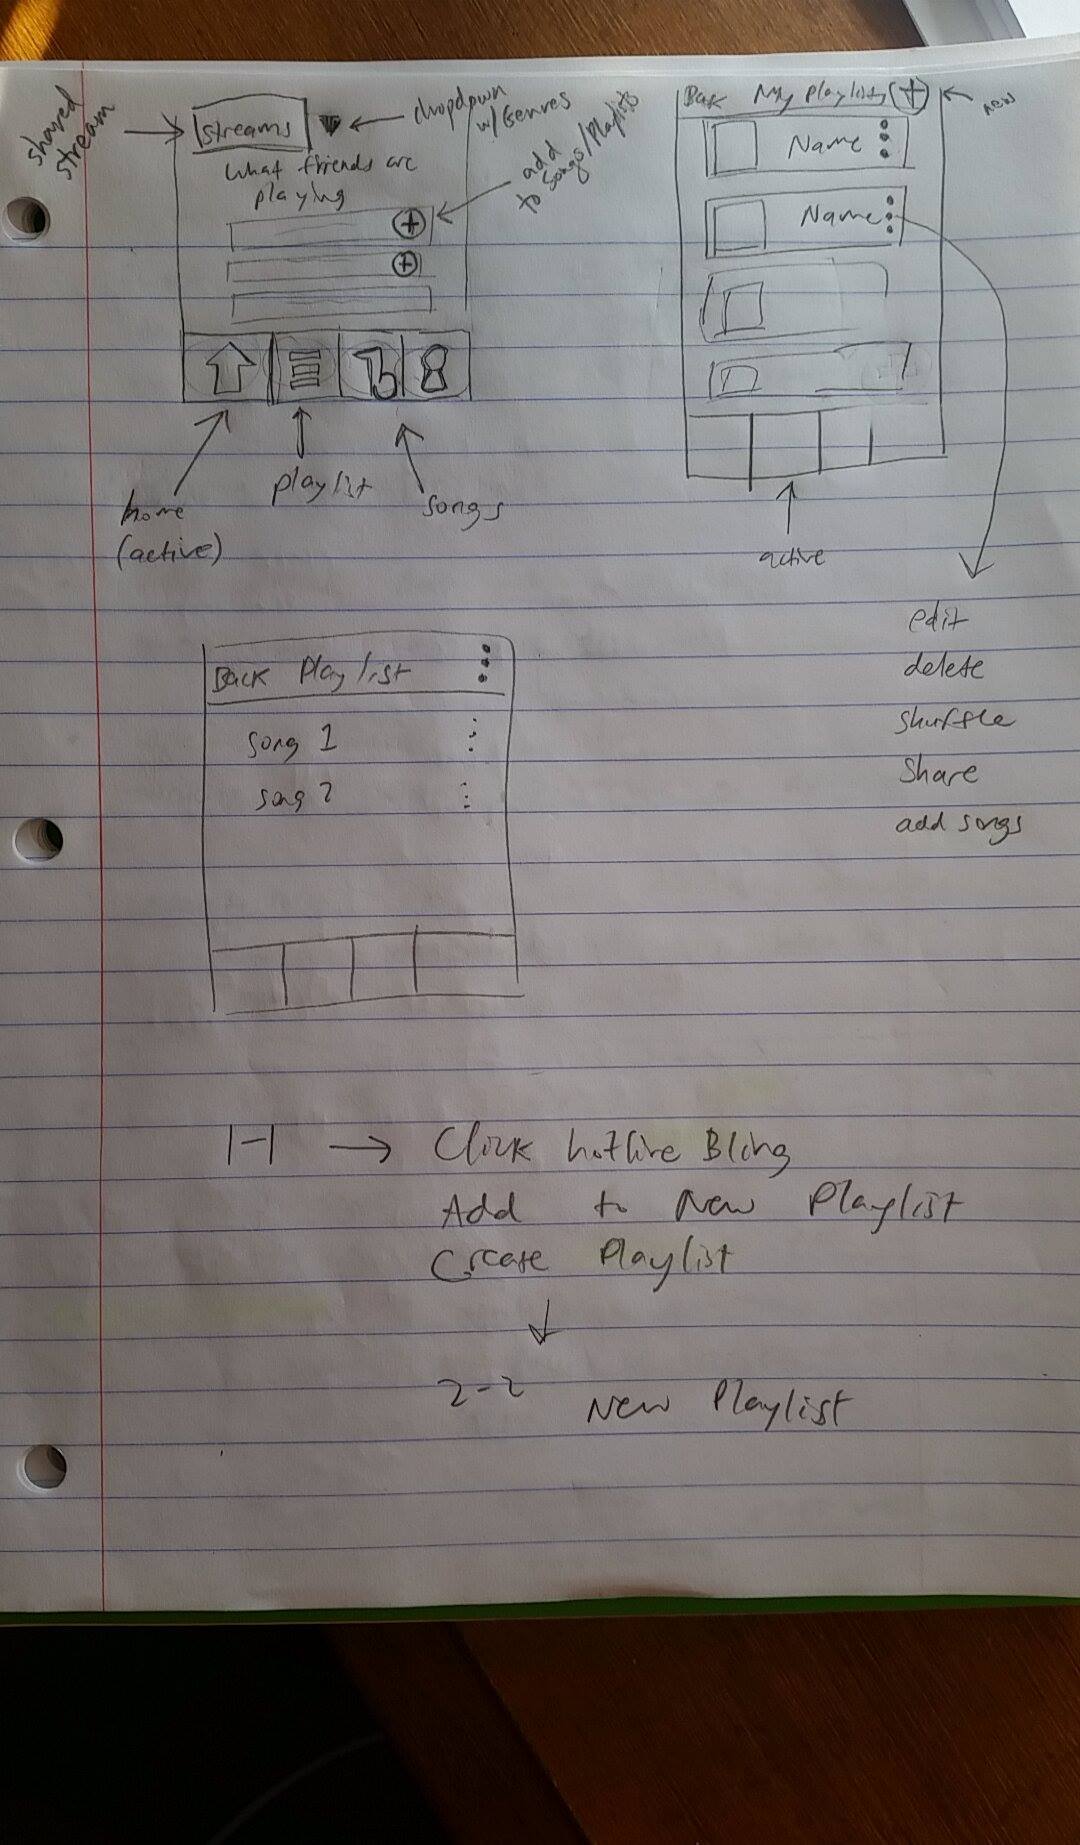 shared
stream
streams
dropdown
w/ Genres
What friends are
playing
add
to songs/Playlists
home
(active)
playlist
songs
Back My Playlists
new
Name
Name
active
edit
delete
shuffle
Share
add songs
Back Playlist
song 1
song 2
1-1 → Click hotline Bling
Add to New Playlist
Create Playlist
2-2 New Playlist